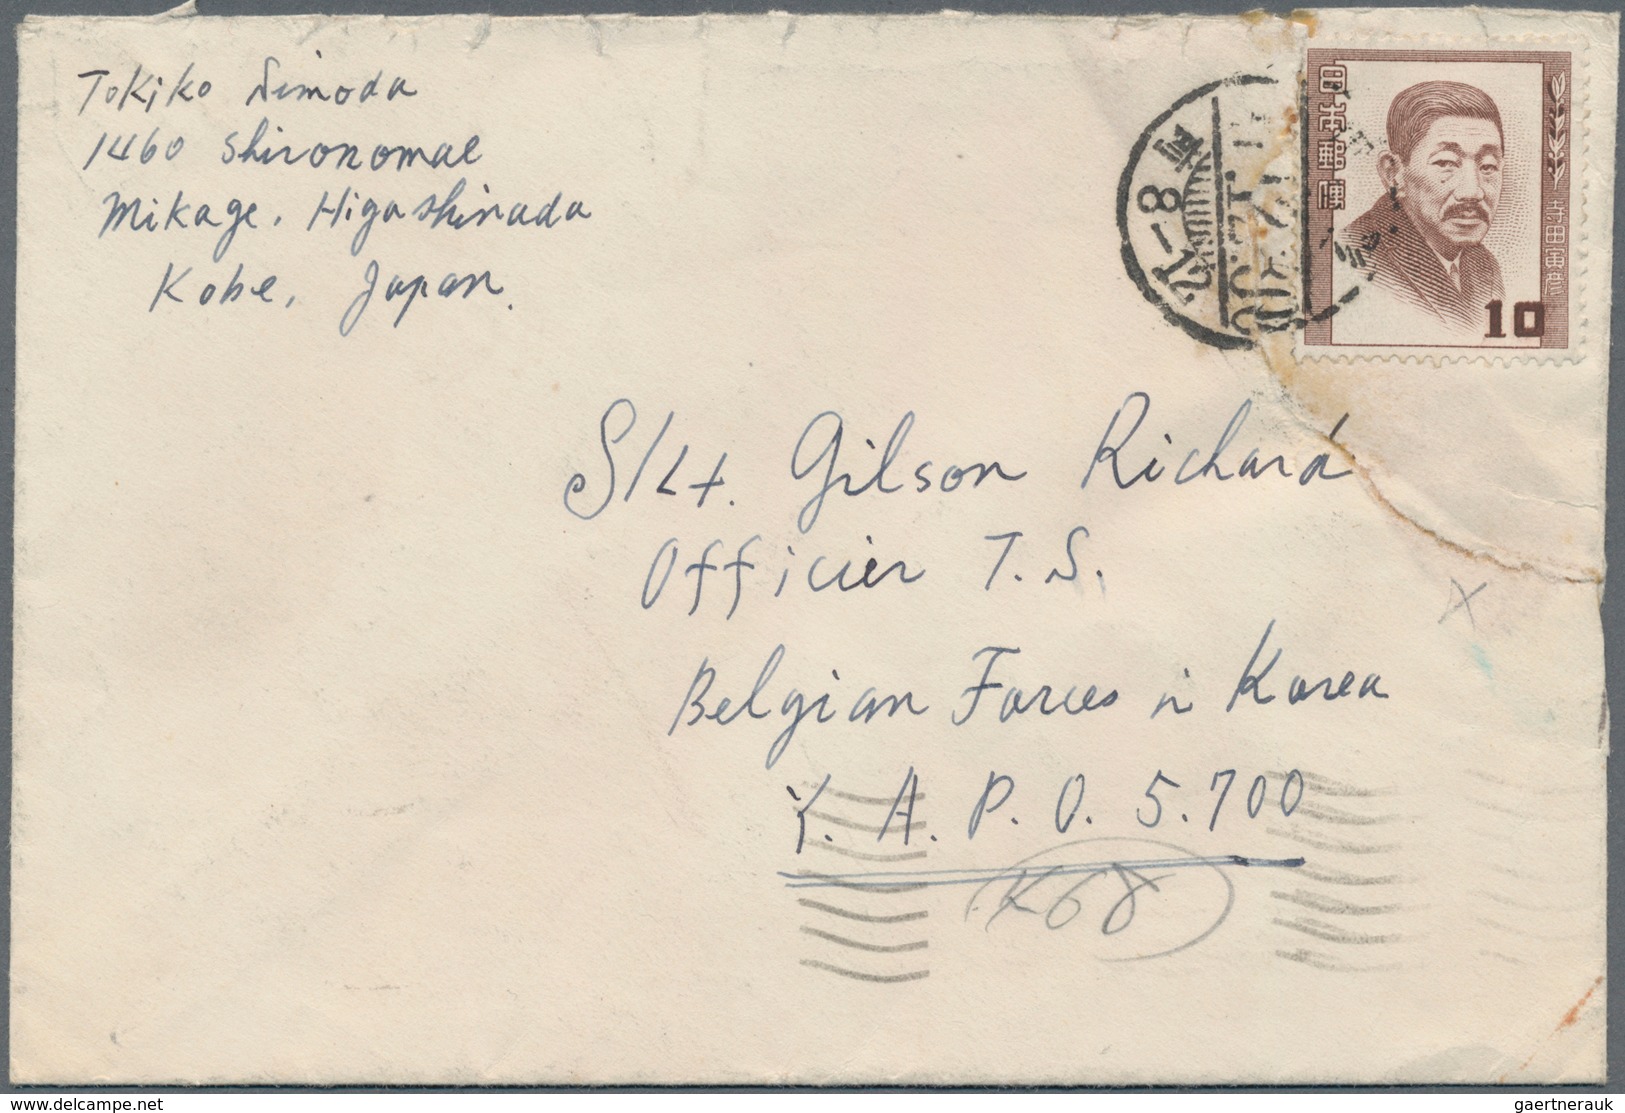 Tokiko Simoda
1460 Shironomae
Mikage, Higashinada
Kobe, Japan.
日本郵便
寺田寅彦
10
S/Lt. Gilson Richard
Officier T.S.
Belgian Forces in Korea
Y. A. P. O. 5.700
K68
X
www.delcampe.net
gaertnerauk